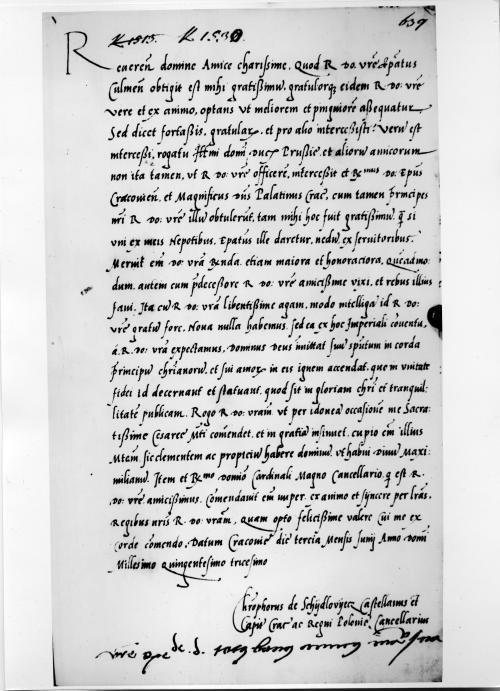 K 1515. K 1530 639
Reveren̄. domine Amice charissime. Quod R. Do. vr̄e Ep̄atus
Culmen̄. obtigit est mihi gratissimū, gratulorq̨ eidem R. Do. vr̄e
vere et ex animo, optans ut meliorem et pinguiorē assequatur
Sed dicet fortassis, gratular, et pro alio intercessisti: Verū est
intercessi, rogatu Ill̄mi domī Ducis Prussie et aliorū amicorum
non ita tamen, ut R. Do. vr̄e officerē, intercessit et R̄mus Do. Ep̄us
Cracovien̄. et Magnificus Dn̄s Palatinus Crac̄, cum tamen principes
nr̄i R. Do. vr̄e illū obtulerūt, tam mihi hoc fuit gratissimū, q̄ si
uni ex meis Nepotibus, Ep̄atus ille daretur, nedū ex servitoribus.
Meruit em̄ Do. vr̄a R̄nda. etiam maiora et honoraciora, Quēadmo:
dum. autem cum p̄decessore R. Do. vr̄e amicissime vixi, et rebus illius
favi. Ita cū R. Do. vr̄a libentissime agam, modo intelligā id R. Do:
vr̄e gratū fore. Nova nulla habemus, sed ea ex hoc Imperiali cōventu,
á. R. Do: vr̄a expectamus, Dominus Deus im̄ittat suū sp̄itum in corda
principū chr̄ianorū, et sui amorē in eis ignem accendat, que in unitate
fidei id decernant et statuant, quod sit in gloriam chr̄i et tranquil:
litatē publicam. Rogo R. Do: vram̄. ut per idonea occasionē me Sacra:
tissime Cesaree M̄ti cōmendet, et in gratiā insinuet, cupio em̄ illius
Mtem̄ sic clementem ac propiciū habere dominū, ut habui Divū Maxi:
milianū. Item et R̄mo Domīo Cardinali Magno Cancellario, q̄ est R.
Do: vr̄e amicissimus. Comendavit em̄ nuper, ex animo et syncere per lr̄as.
Regibus R. Do: vr̄am, quam opto felicissime valere cui me ex
corde cōmendo. Datum Cracovie die tercia Mensis Junij Anno Domī
Millesimo Quingentesimo tricesimo
Chr̄ophorus de Schijdlovyecz Castellanus et
Capi̅e Crac̄ ac Regni Polonie Cancellarius
vr̄e